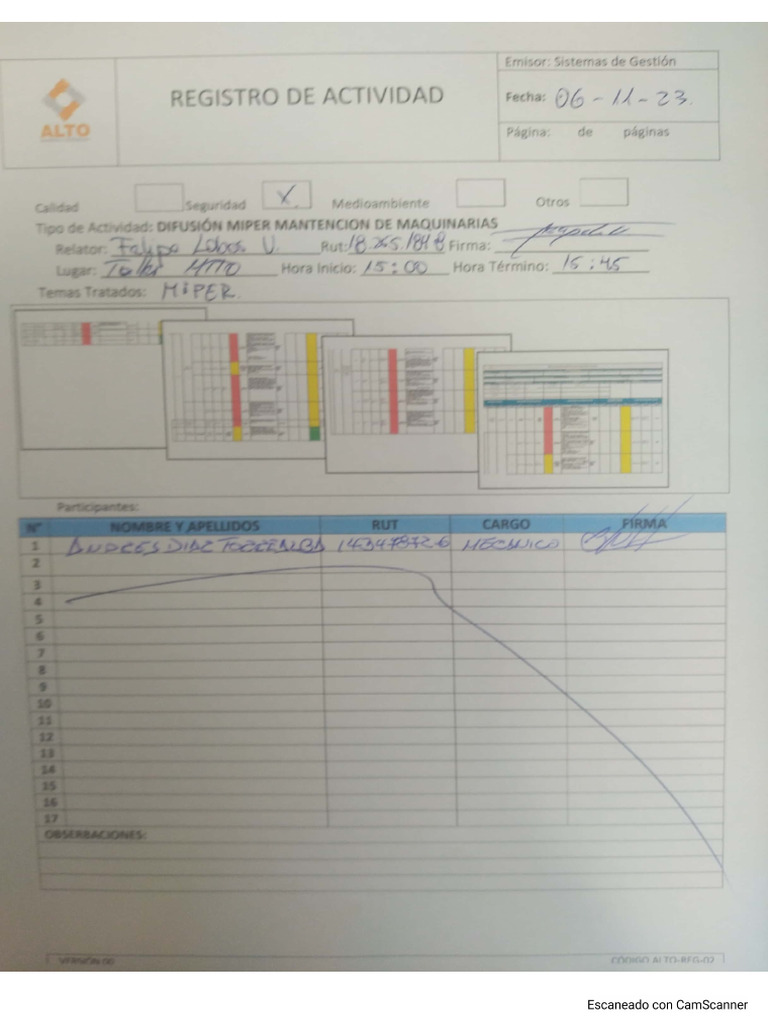 Emisor: Sistemas de Gestión
ALTO
REGISTRO DE ACTIVIDAD
Fecha: 06-11-23.
Página: de páginas
Calidad Seguridad X Medioambiente Otros
Tipo de Actividad: DIFUSIÓN MIPER MANTENCION DE MAQUINARIAS
Relator: Felipe Lobos V. Rut: 18.265.184-8 Firma:
Lugar: Taller MTTO Hora Inicio: 15:00 Hora Término: 15:45
Temas Tratados: MIPER.
Participantes:
N° NOMBRE Y APELLIDOS RUT CARGO FIRMA
1 ANDRES DIAZ TORREALBA 14347872-6 MECANICO
2
3
4
5
6
7
8
9
10
11
12
13
14
15
16
17
OBSERBACIONES:
VERSIÓN 00 CÓDIGO ALTO-REG-02
Escaneado con CamScanner